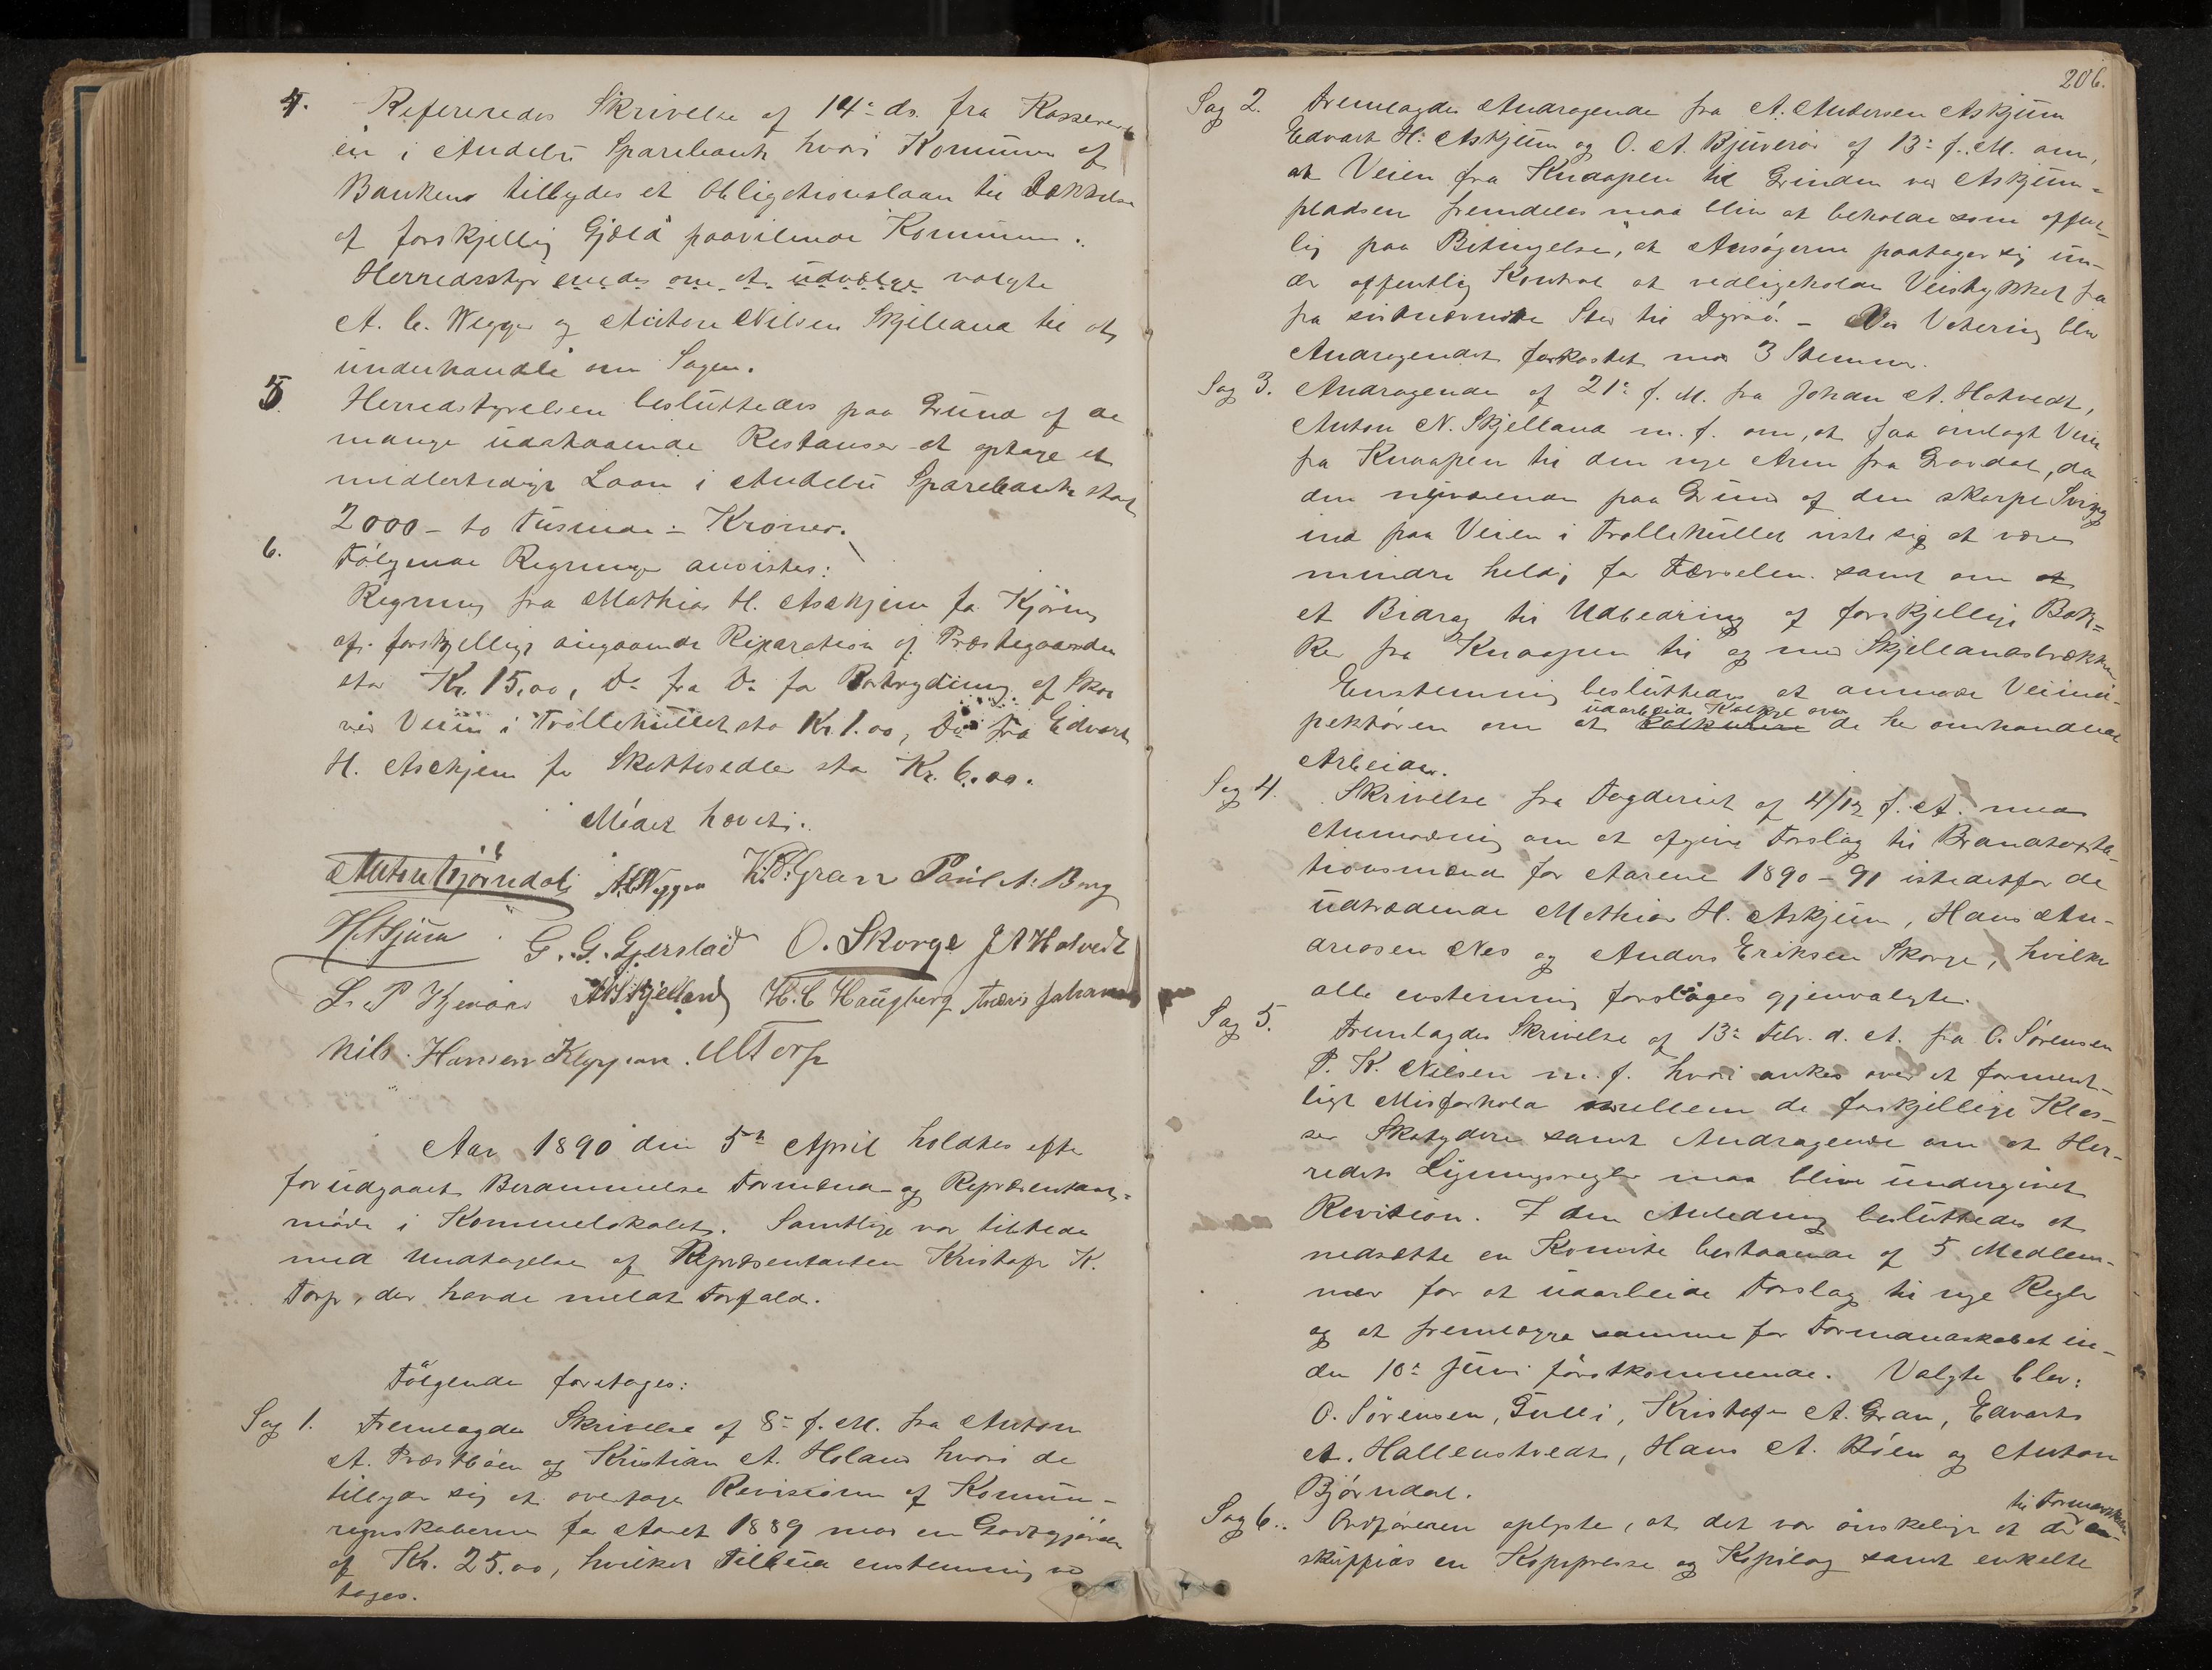 4. Refereredes Skrivelse af 14de ds. fra Kasserer-
en i Andebu Sparebank hvori Kommunen af
Banken tilbydes et Obligationslaan til Dækkelse
af forskjellig Gjæld paavilende Kommunen.
Herredsstyr enedes om at udvælge valgte
A. C. Wegger og Anton Nilsen Skjelland til at
underhandle om Sagen.
5. Herredstyrelsen besluttedes paa Grund af de
mange udestaaende Restanser at optage et
midlertidigt Laan i Andebu Sparebank stort
2000 – to Tusinde – Kroner.
6. Følgende Regninger anvistes:
Regning fra Mathias H. Askjem for Kjøring
af forskjelligt angaaende Reparation af Præstegaarden
stor Kr. 15,00, Do fra Do for Bortrydning af Skov
ved Veien i Trollehullet sto Kr. 1.00, Do fra Edvart
H. Askjem for Skattesedler sto Kr. 6.00.
Mødet hævet.
Anton Bjørndal A.C. Wegger K. A. Gran Paul A. Berg
H Askjem G. G. Gjerstad O. Skorge J A Hotvedt
L. P A N Skjelland H. C Haugberg Andreas Johansen
Nils Hansen Kleppan. M Torp
Aar 1890 den 5te April holdtes efter
forudgaaet Berammelse Formænd og Repræsentant-
møde i Kommelokalet. Samtlige var tilstede
med Undtagelse af Repræsentanten Kristofer K.
Torp, der havde meldt Forfald.
Følgende foretoges:
Sag 1. Fremlagdes Skrivelse af 8de f. M. fra Anton
A. Præstbøen og Kristian A. Holand hvori de
tilbyder sig at overtage Revisionen af Kommun-
regnskaberne for Aaret 1889 mod en Godtgjørelse
af Kr. 25.00, hvilket Tilbud enstemmig ved
toges.
206.
Sag 2. Fremlagdes Andragende fra A. Andersen Askjem
Edvart H. Askjem og O. A. Bjuerød af 13de f. M. om,
at Veien fra Knaapen til Grinden ved Askjem-
pladsen fremdeles maa blive at beholde som offent-
lig paa Betingelse, at Ansøgerne paatager sig un-
der offentlig Kontrol at vedligeholde Veistykket fra
fra sidstnævnte Sted til Dyrsø. – Ved Votering blev
Andragendet forkastet mod 3 Stemmer.
Sag 3. Andragende af 21de f. M. fra Johan A. Hotvedt,
Anton N. Skjelland m. f. om, at faa omlagt Veien
fra Knaapen til den nye Arm fra Gravdal, da
den nuværende paa Grund af den skarpe Sving
ind paa Veien i Trollehullet viste sig at være
mindre heldig for Færselen. samt om at
et Bidrag til Udbedring af forskjellige Bak-
ker fra Knaapen til og med Skjellandsbrækken
Enstemmig besluttedes at anmode Veiins-
pektøren om at udarbeide Kalkyle over de her omhandlede
Arbeider.
Sag 4. Skrivelse fra Fogderiet af 4/12 f. A. med
Anmodning om at afgive Forslag til Brandtaxta-
tionsmænd for Aarene 1890–91 istedetfor de
udtrædende Mathias H. Askjem, Hans An-
dreasen Nes og Anders Eriksen Skorge, hvilke
alle enstemmig forsloges gjenvalgte.
Sag 5. Fremlagdes Skrivelse af 13de Febr. d. A. fra O. Sørensen
P. K. Nilsen m. f. hvori ankes over et forment-
ligt Misforhold mellem de forskjellige Klas-
ser Skatydere samt Andragende om at Her-
redets Ligningsregler maa blive undergivet
Revision. I den Anledning besluttedes at
nedsætte en Komite bestaaende af 5 Medlem-
mer for at udarbeide Forslag til nye Regler
og at fremlægge samme for Formandskabet in-
den 10de Juni førstkommende. Valgte blev:
O. Sørensen, Gulli, Kristofer A. Gran, Edvart
A. Hallenstvedt, Hans A. Bøen og Anton
Bjørndal.
Sag 6. Ordføreren oplyste, at det var ønskeligt at der til Formandskabet an-
skuffedes en Kopipresse og Kopibog samt enkelte